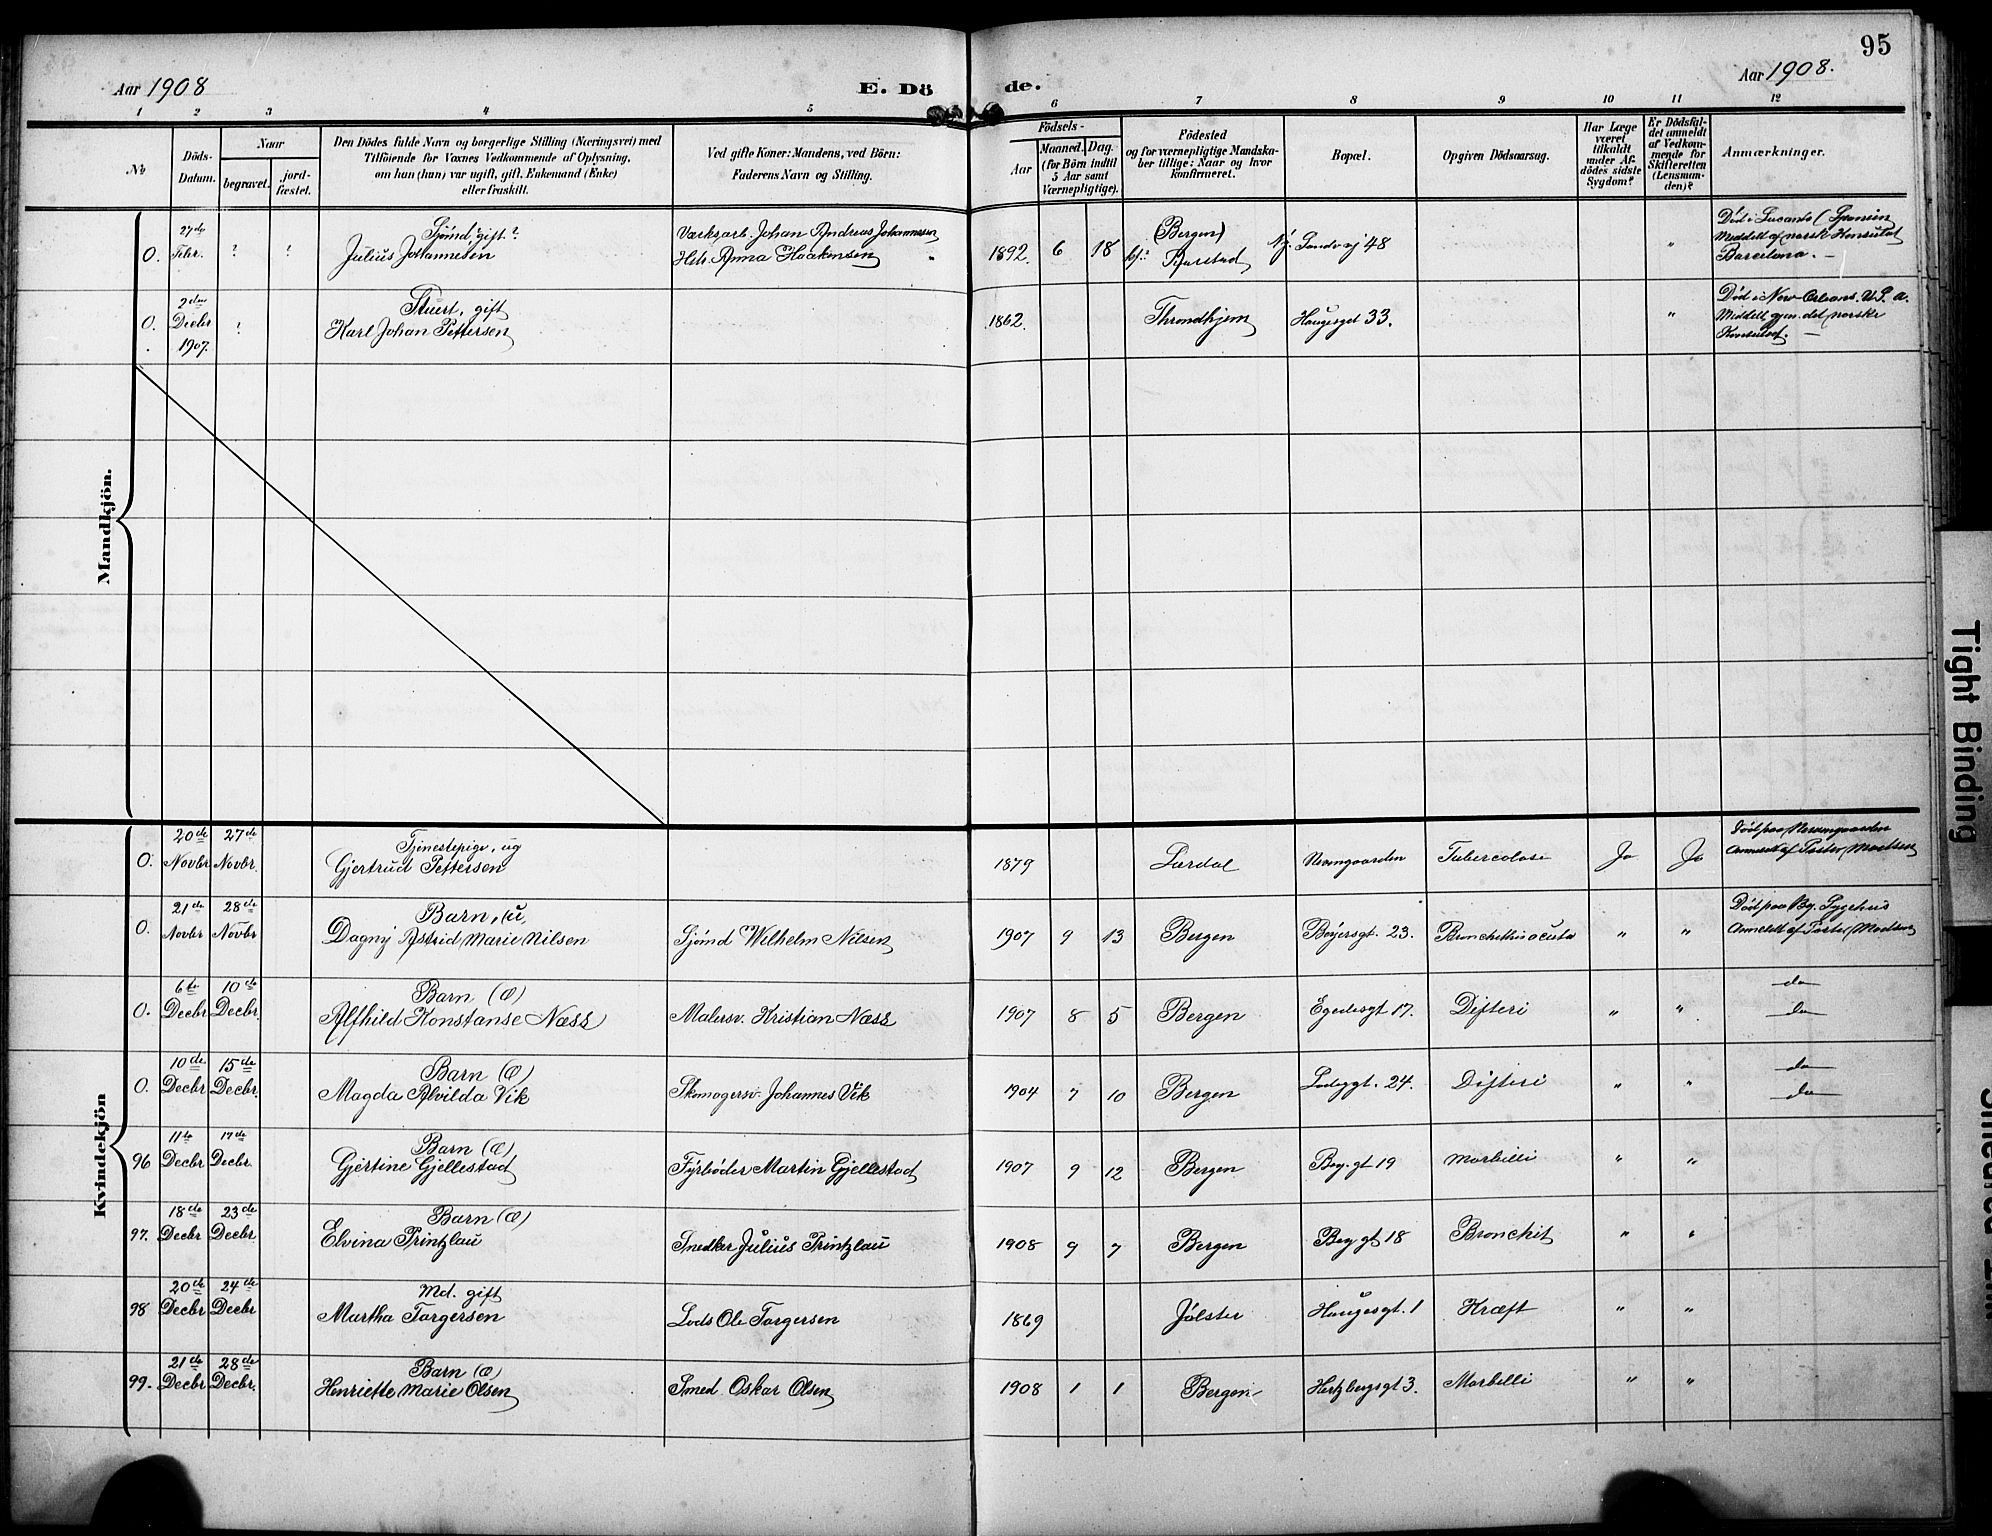 95
Aar 1908
E. Dö
de.
Aar 1908.
1 2 3 4 5 6 7 8 9 10 11 12
No
Döds-
Datum.
Naar
begravet.
jord-
fæstet.
Den Dödes fulde Navn og borgerlige Stilling (Næringsvei) med
Tilföiende for Voxnes Vedkommende af Oplysning,
om han (hun) var ugift, gift, Enkemand (Enke)
eller fraskilt.
Ved gifte Koner: Mandens, ved Börn:
Faderens Navn og Stilling.
Födsels-
Aar
Maaned. Dag.
(for Börn indtil
5 Aar samt
Værnepligtige).
Födested
og for værnepligtige Mandska-
ber tillige: Naar og hvor
konfirmeret.
Bopæl.
Opgiven Dödsaarsag.
Har Læge
været
tilkaldt
under Af-
dödes sidste
Sygdom?
Er Dödsfal-
det anmeldt
af Vedkom-
mende for
Skifteretten
(Lensman-
den)?
Anmærkninger.
Mandkjön.
0. 27de Febr. ? ?
Sjömd, gift?
Julius Johannesen
Værksarb. Johan Andreas Johannesen
Hst. Anna Haakensen
1892. 6 18
(Bergen)
48
"
Död i
Meddelt af norsk Konsulat
Barcelona. —
0. 2den Decbr 1907. ?
Stuert, gift
Karl Johan Pettersen
1862.
Throndhjem
Haugesgt 33.
"
Död i New-Orleans. U.S.A.
Meddelt gjen. det norske
Konsulat. —
Kvindekjön
0. 20de Novbr 27de Novbr.
Tjenestepige, ug
Gjertrud Pettersen
1879
Lærdal
Tuberculose
Ja
Ja
Anmeldt af Pastor Madsen
0. 21de Novbr 28de Novbr
Barn, u
Dagny Astrid Marie Nilsen
Sjömd Wilhelm Nilsen
1907 9 13
Bergen
Beyersgt. 23.
" "
Död paa By. Sygehus
Anmeldt af Pastor Madsen
0. 6te Decbr 10de Decbr.
Barn (æ)
Alfhild Konstanse Næss
Malersv. Kristian Næss
1907 8 5
Bergen
Egedesgt 17.
Difteri
" "
do
do
0. 10de Decbr 15de Decbr.
Barn (æ)
Magda Alvilda Vik
Skomagersv. Johannes Vik
1904 7 10
Bergen
24.
Difteri
" "
do
do
96 11te Decbr 17de Decbr.
Barn (æ)
Gjertine Gjellestad
Fyrböder Martin Gjellestad
1907 9 12
Bergen
Bey.gt 19
Morbilli
" "
97. 18de Decbr 23de Decbr.
Barn (æ)
Elvina Printzlau
Snedker Julius Printzlau
1908 9 7
Bergen
Bey gt 18
Bronchit
" "
98 20de Decbr 24de Decbr.
Md. gift
Martha Torgersen
Lods Ole Torgersen
1869
Jölster
Haugesgt. 1
Kræft
" "
99. 21de Decbr 28de Decbr.
Barn (æ)
Henriette Marie Olsen
Smed Oskar Olsen
1908 1 1
Bergen
Hertzbergsgt 3.
Morbilli
" "
Tight Binding